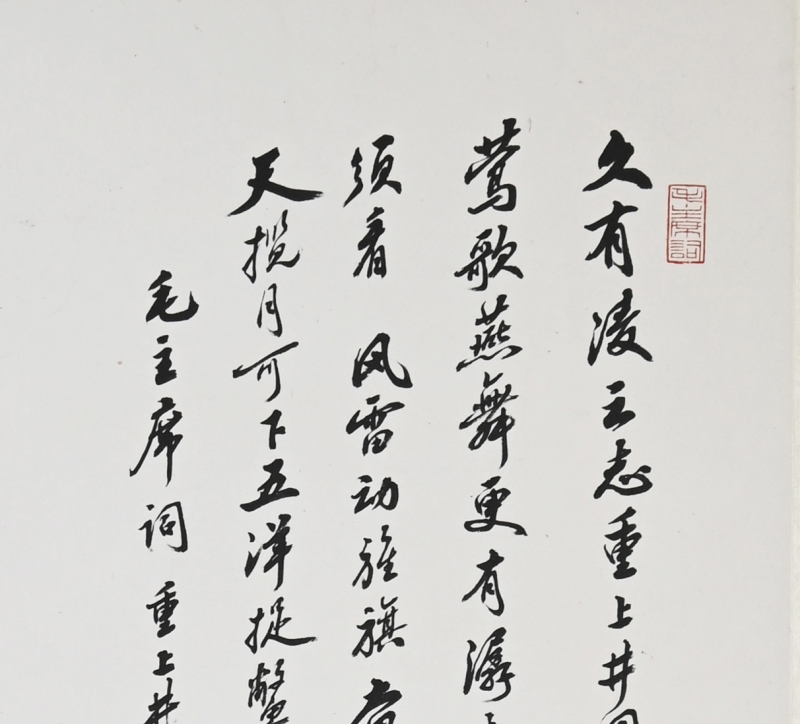 毛主席詞
久有凌云志重上井冈
莺歌燕舞更有潺
须看 风雷动旌旗奋
天揽月可下五洋捉鳖
毛主席词 重上井